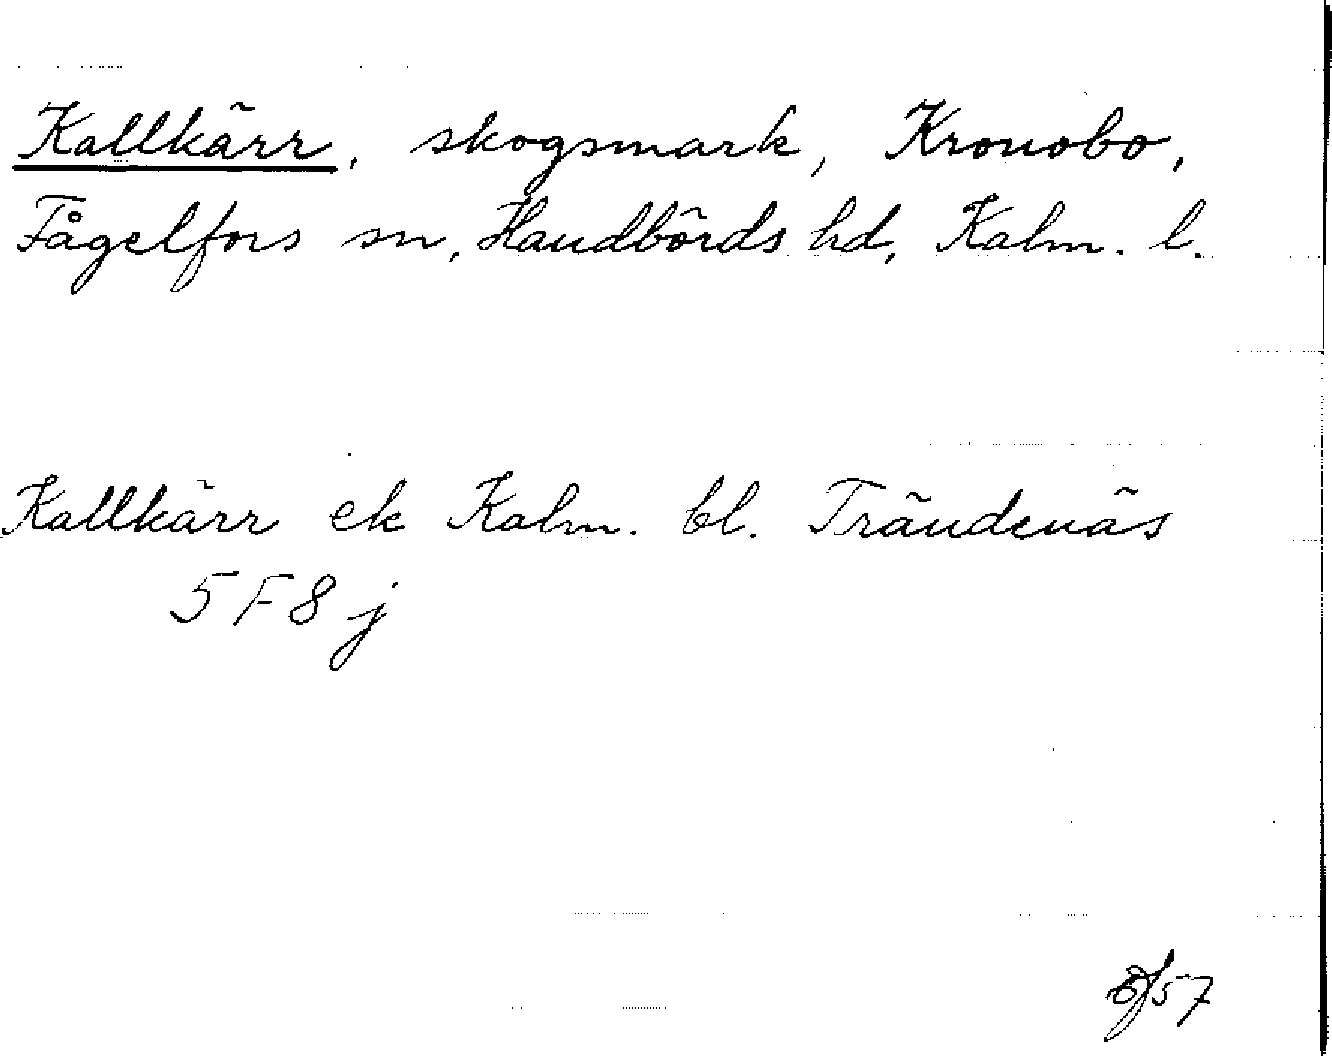 Kallkärr, skogsmark, Kronobo,
Fågelfors sn, Handbörds hd, Kalm. l.
Kallkärr ek Kalm. bl. Trändenäs
5 F 8 j
57